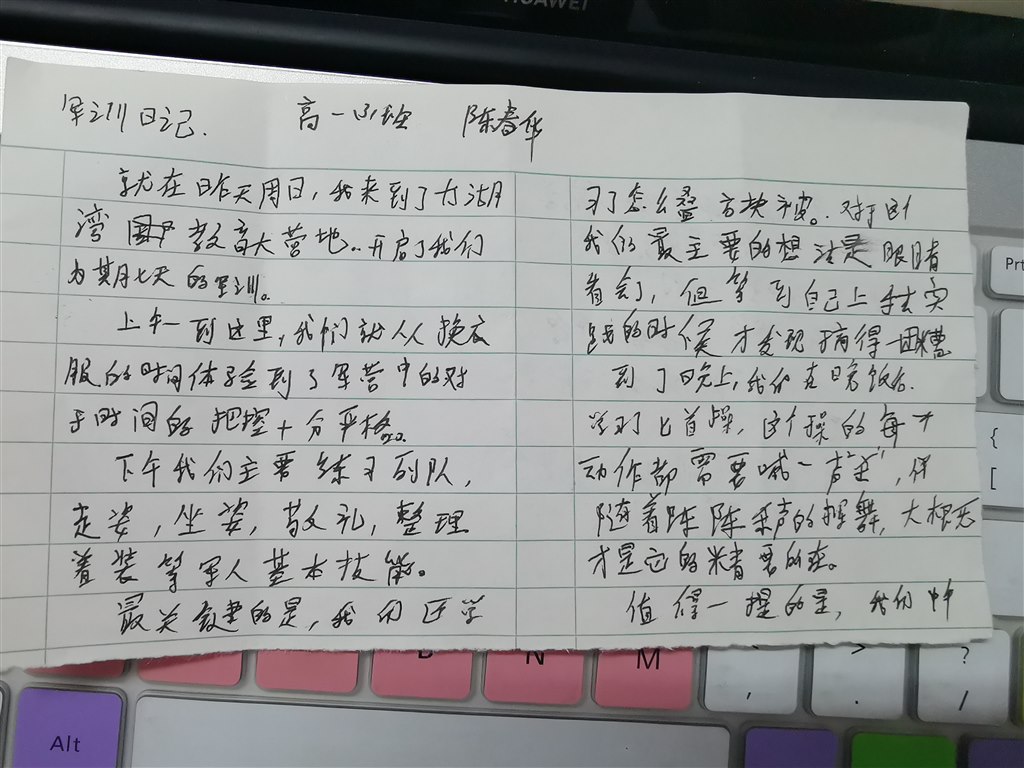 HUAWEI
军训日记. 高一 班 陈春华
就在昨天周日，我来到了大湖
湾国 教育大营地..开启了我们
为其月七天的军训。
上午一到这里，我们就从换衣
服的时间体验到了军营中的对
于时间的把控十分严格。
下午我们主要练习列队，
走姿，坐姿，敬礼，整理
着装等军人基本技能。
最关键的是，我们还学
习了怎么叠方块被。对于
我们最主要的想法是眼睛
看会了，但等到自己上手去实
践的时候才发现搞得一团糟
到了晚上，我们在晚饭后.
学习匕首操，这个操的每个
动作都需要喊一声"走"，伴
随着阵阵 声的挥舞，
才是它的精要所在。
值得一提的是，我们中
Prt
{
[
B
N
M
,
>
?
/
Alt